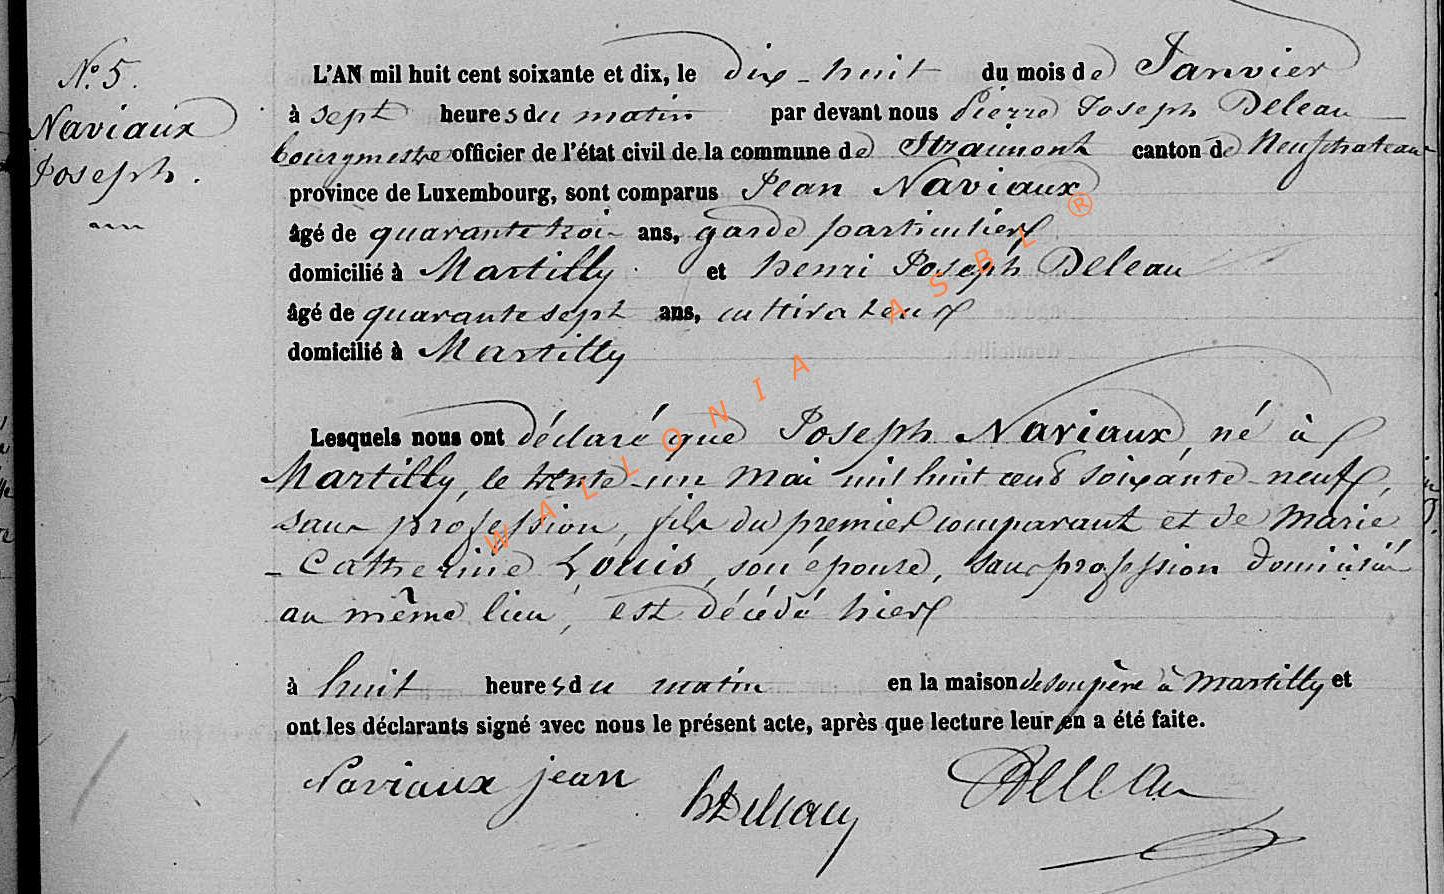 N° 5.
Naviaux
Joseph.
L'AN mil huit cent soixante et dix, le dix-huit du mois de Janvier
à sept heures du matin par devant nous Pierre Joseph Deleau
bourgmestre officier de l'état civil de la commune de Straimont canton de Neufchateau
province de Luxembourg, sont comparus Jean Naviaux
âgé de quarante trois ans, garde particulier
domicilié à Martilly. et henri Joseph Deleau
âgé de quarante sept ans, cultivateur
domicilié à Martilly
Lesquels nous ont déclaré que Joseph Naviaux né à
Martilly, le trente-un mai mil huit cent soixante-neuf,
sans profession, fils du premier comparant et de Marie
-Catherine Louis, son épouse, sans profession domiciliés
au même lieu, est décédé hier
à huit heures du matin en la maison de son père à Martilly et
ont les déclarants signé avec nous le présent acte, après que lecture leur en a été faite.
Naviaux jean
Deleau
WALLONIA ASBL ®